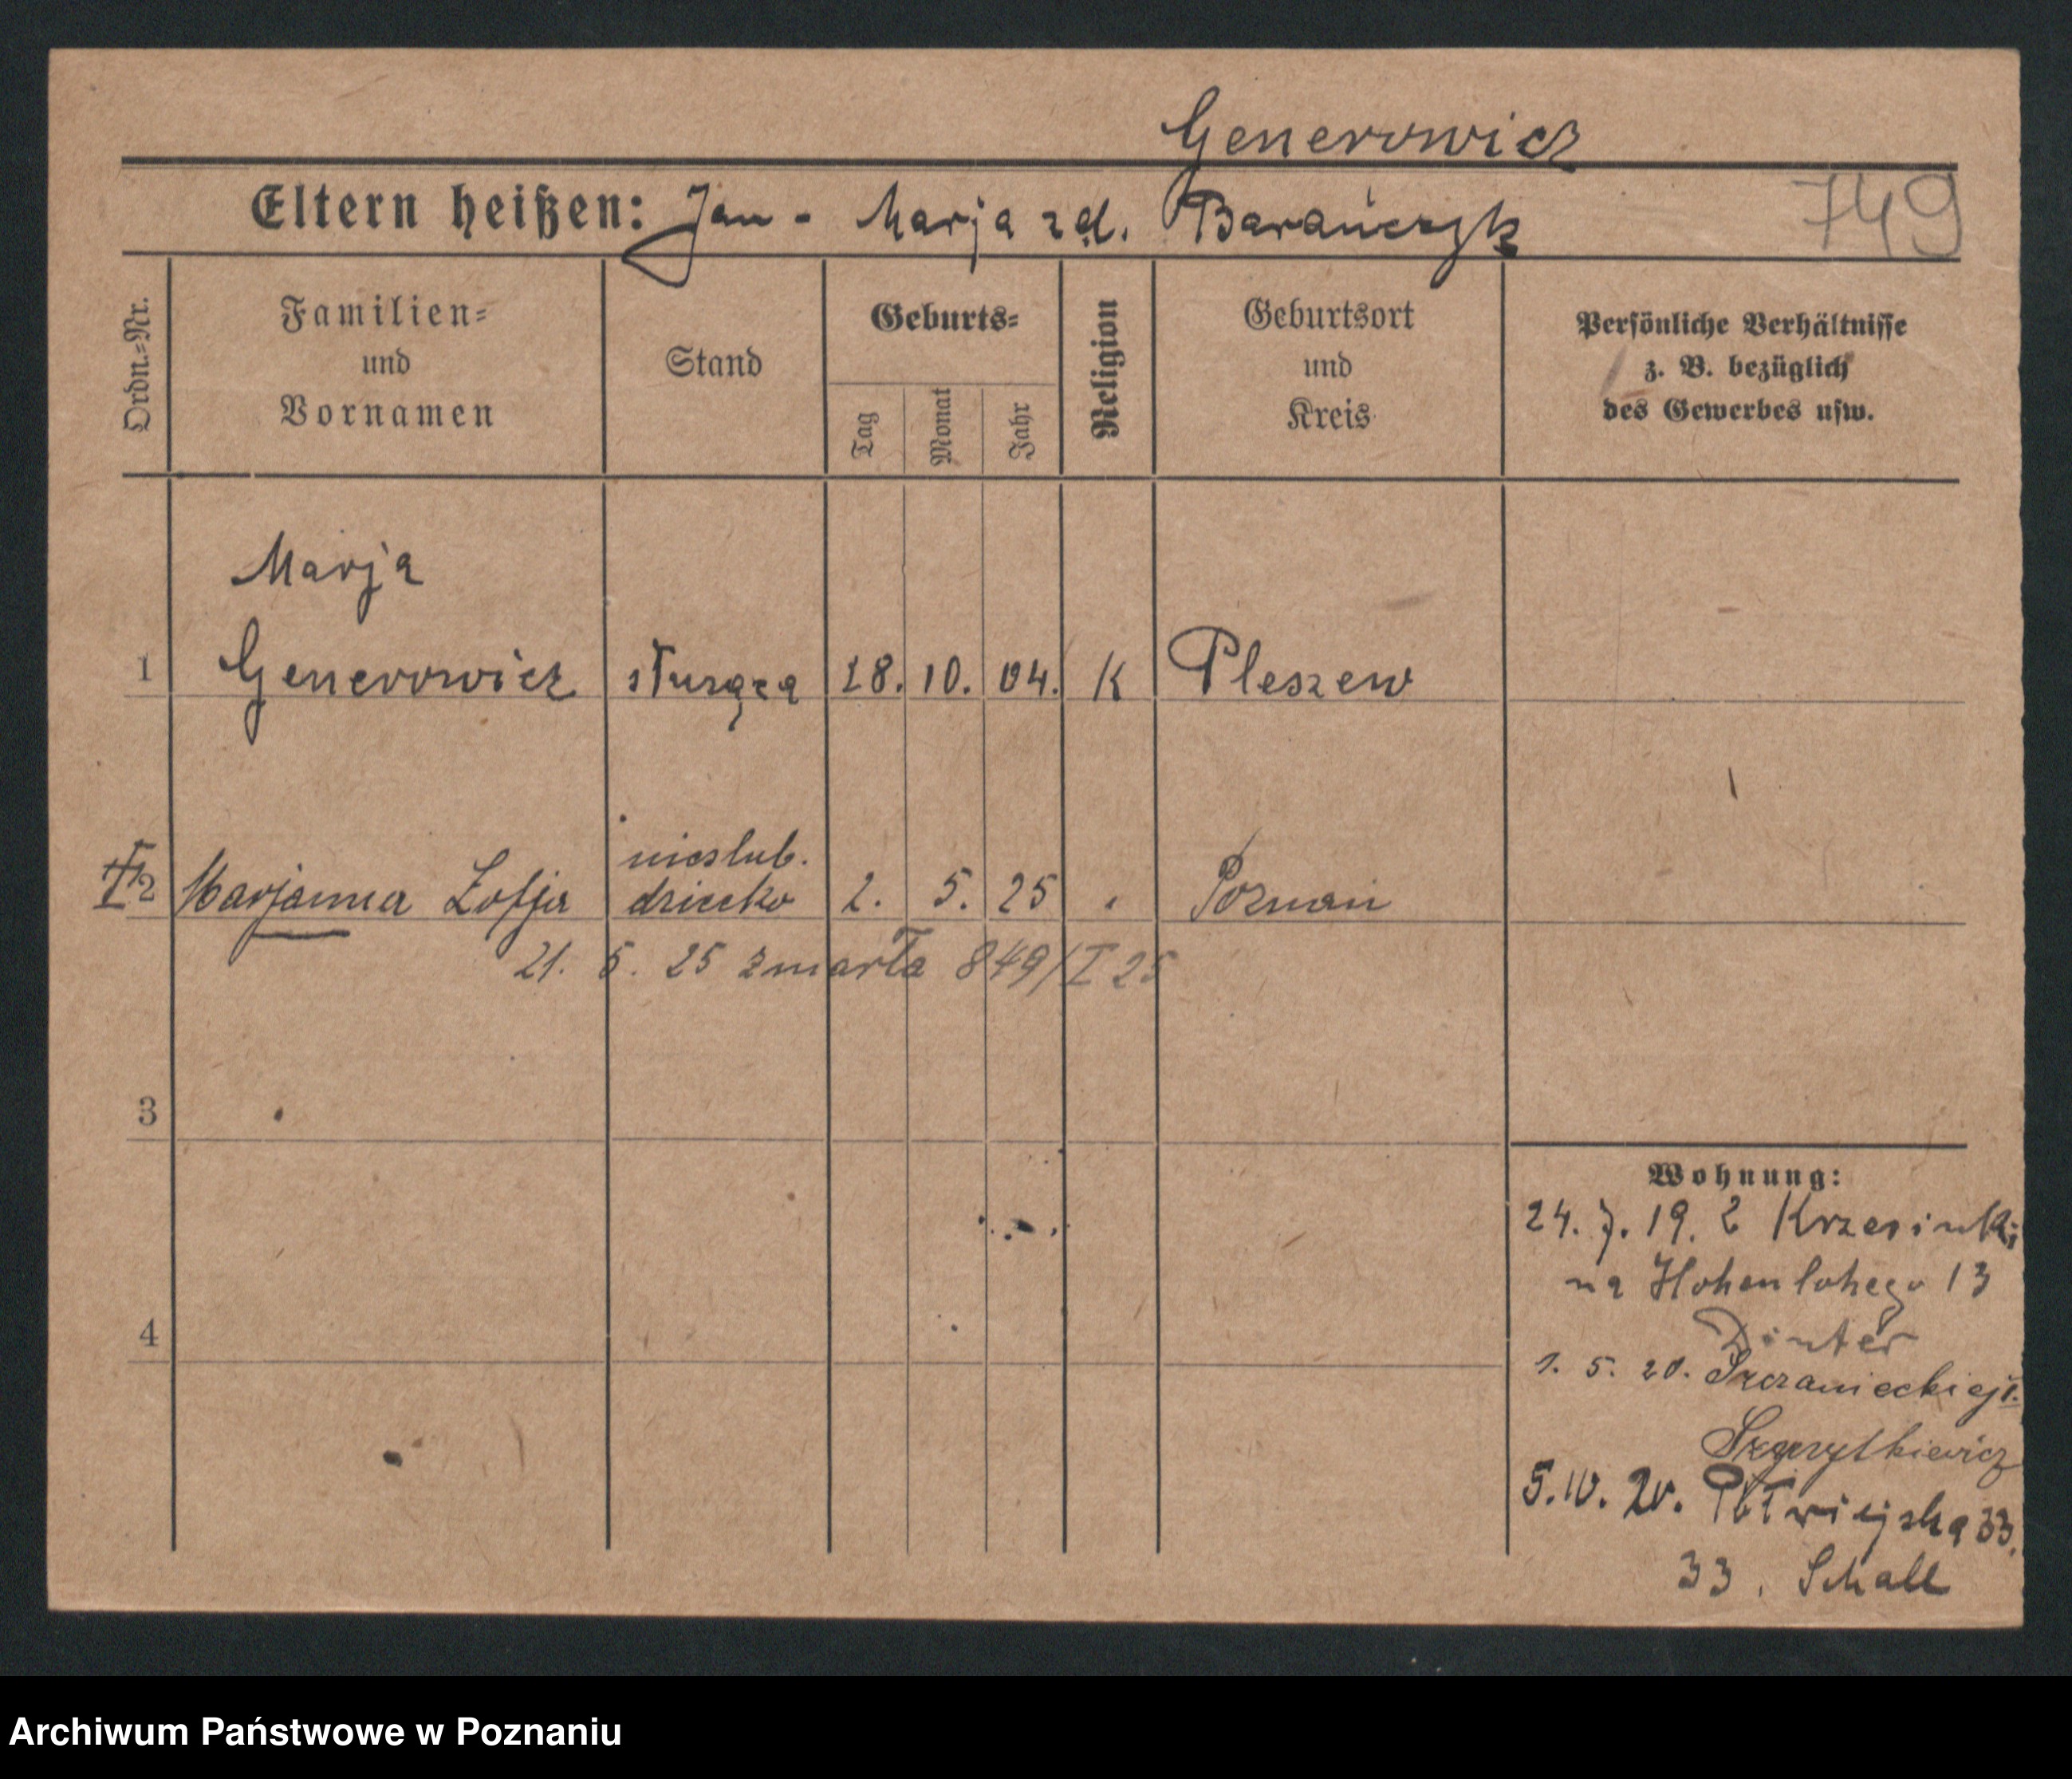 Generowicz
Eltern heißen: Jan - Marja zd. Barańczyk
749
Ordn.-Nr.
Familien-
und
Vornamen
Stand
Geburts-
Tag
Monat
Jahr
Religion
Geburtsort
und
Kreis
Persönliche Verhältnisse
z. B. bezüglich
des Gewerbes usw.
Marja
1 Generowicz służąca 28. 10. 04. K Pleszew
nieslub.
2 Marjanna Zofja dziecko 2. 5. 25 Poznań
21. 5. 25 zmarła 849/I 25
3
4
Wohnung:
24. 7. 19. z Krzesinki
na Hohenlohego 13
Dinter
1. 5. 20. Szczanieckiej
5. 10. 20. Półwiejska 33.
33. Schall
Archiwum Państwowe w Poznaniu